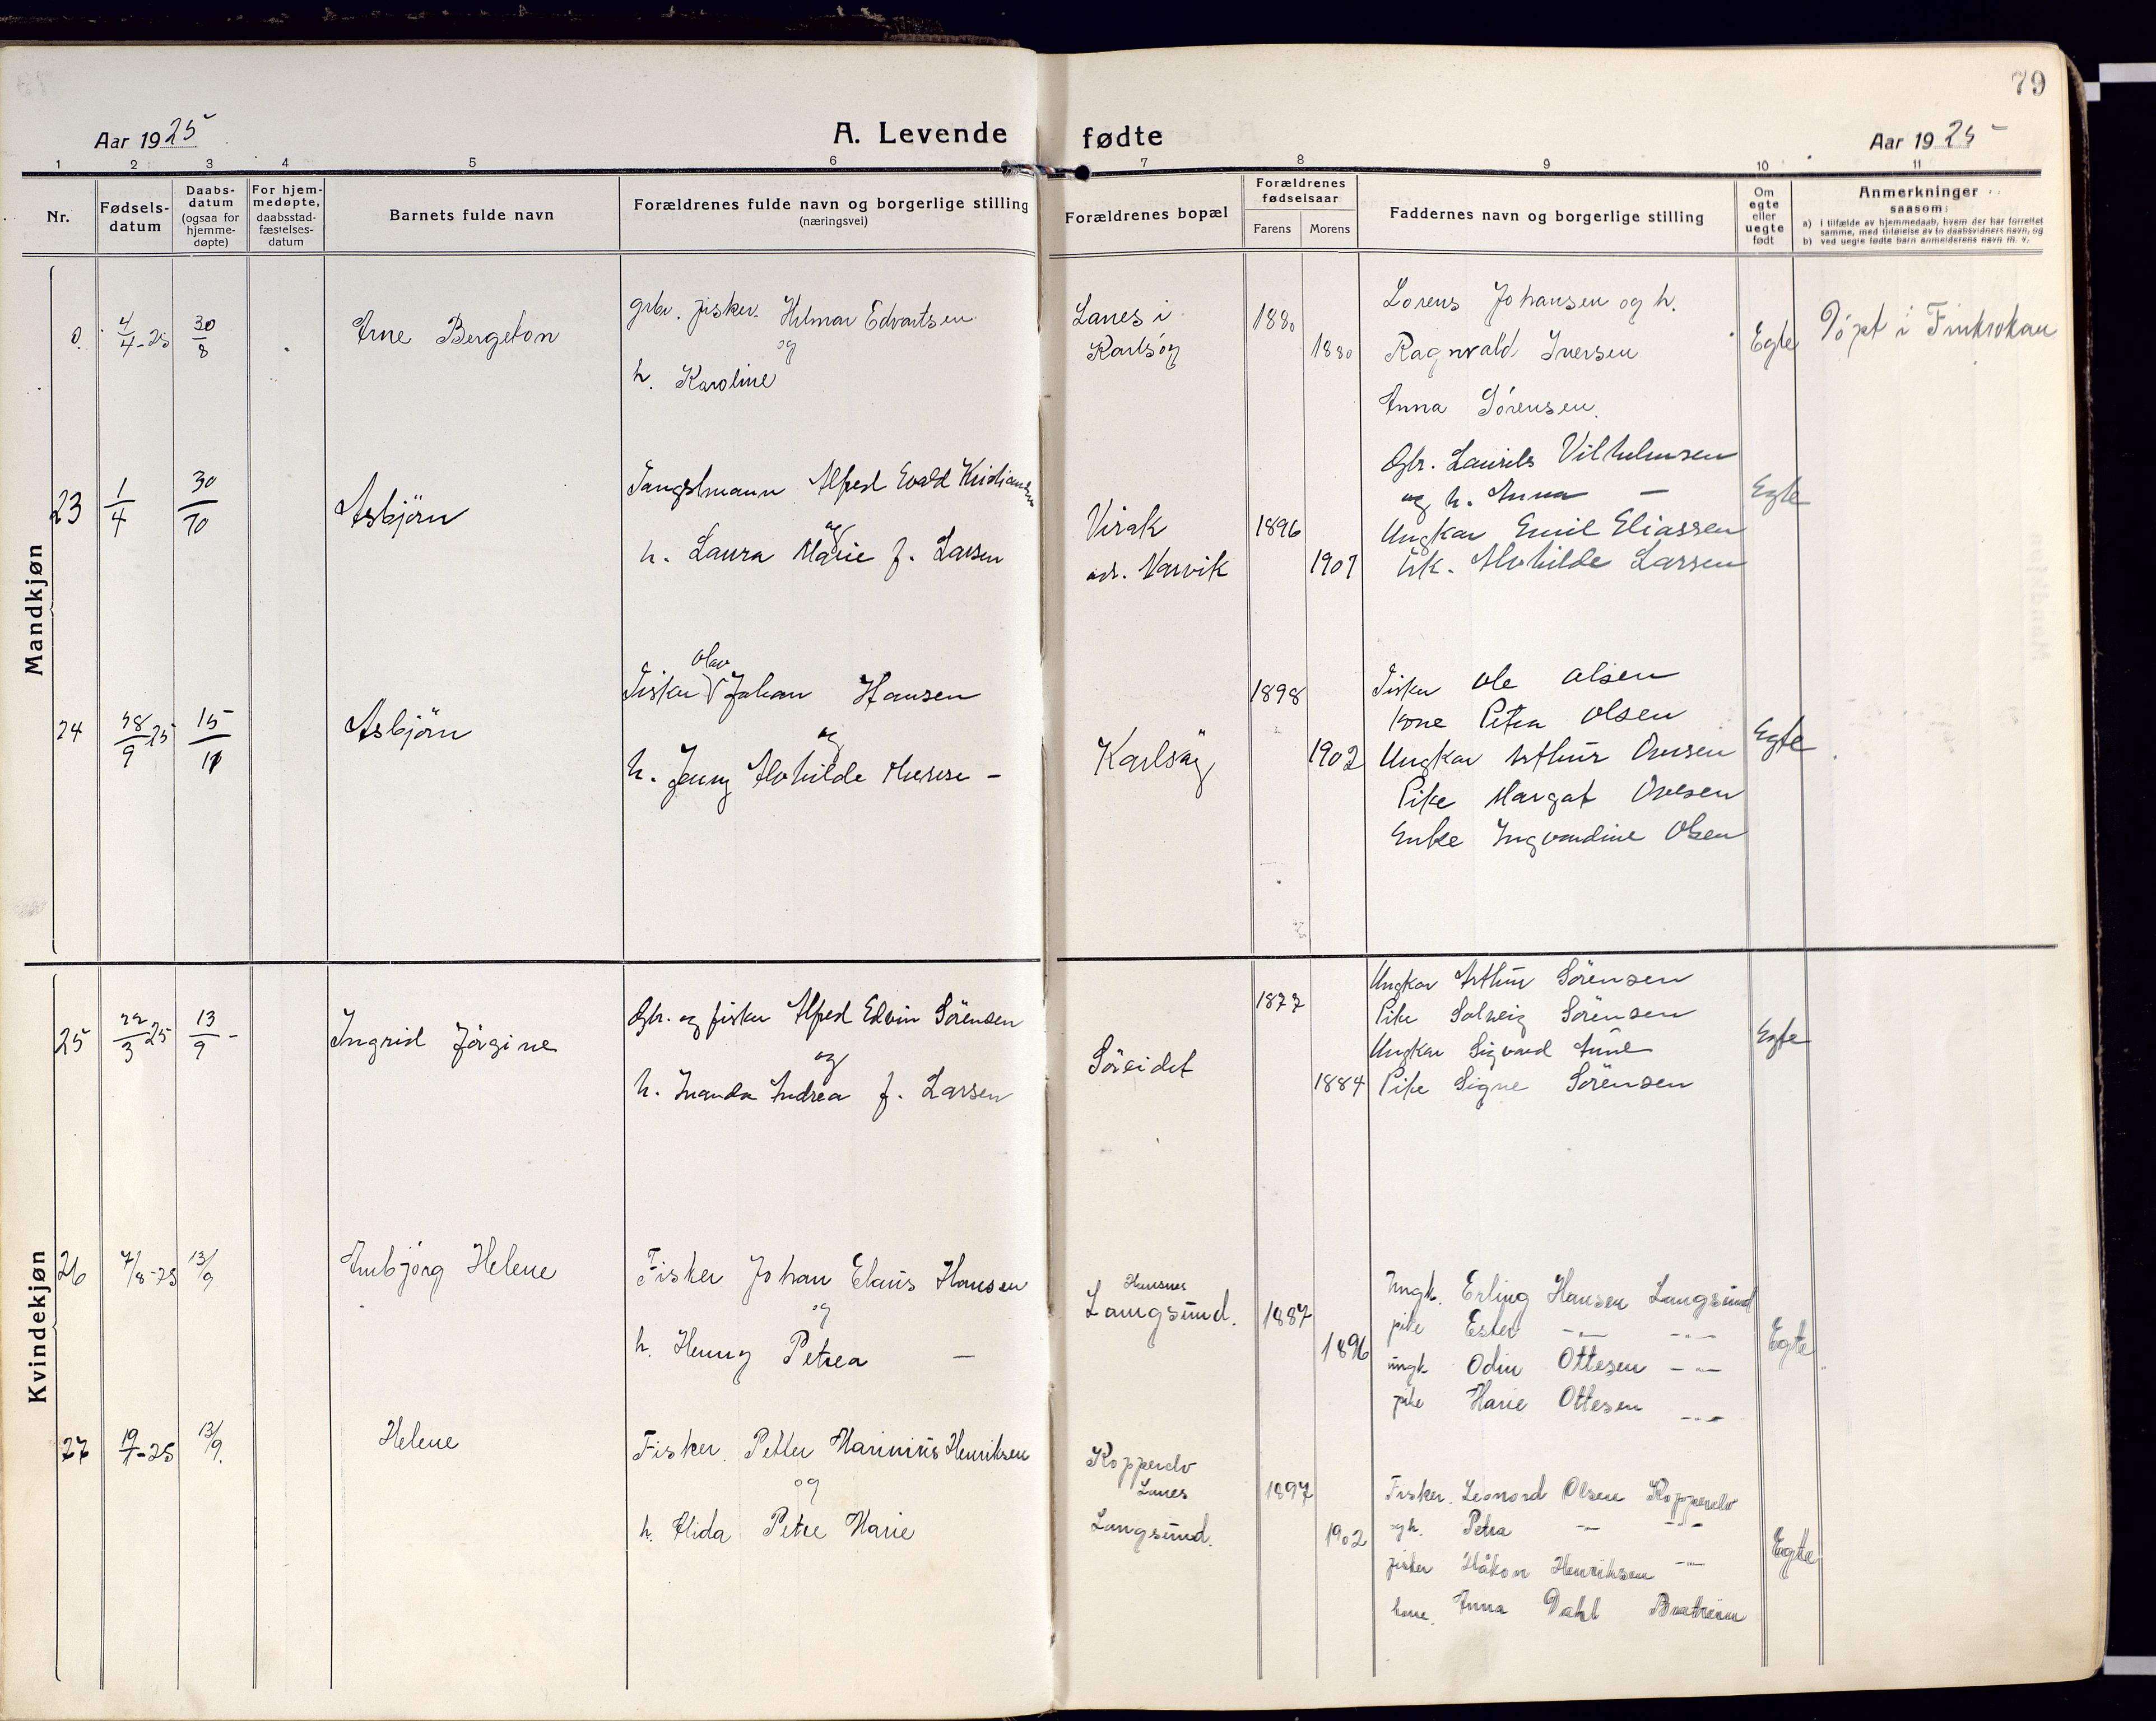 79
Aar 1925
A. Levende fødte
Aar 1925
1 2 3 4 5 6 7 8 9 10 11
Nr.
Fødsels-
datum
Daabs-
datum
(ogsaa for
hjemme-
døpte)
For hjem-
medøpte,
daabsstad-
fæstelses-
datum
Barnets fulde navn
Forældrenes fulde navn og borgerlige stilling
(næringsvei)
Forældrenes bopæl
Forældrenes
fødselsaar
Farens Morens
Faddernes navn og borgerlige stilling
Om
egte
eller
uegte
født
Anmerkninger
saasom:
a) i tilfælde av hjemmedaab, hvem der har forrettet
samme, med tilføielse av to daabsvidners navn, og
b) ved uegte fødte barn anmelderens navn m. v.
Mandkjøn
0. 4/4-25 30/8 Arne Bergeton
grbr. fisker. Hilmar Edvartsen
og
h. Karoline
Lanes i
Karlsøy
1880
1880
Lorens Johansen og h.
Ragnvald Iversen
Anna Sørensen.
Egte
Døpt i Finkroken
23 1/4 30/10 Asbjörn
Fangstmann Alfred Evald Kristiansen
og
h. Laura Marie f. Larsen
Virak
adr. Narvik
1896
1907
Gbr. Laurits Vilhelmsen
og h. Anna —
Ungkar Emil Eliassen
Frk. Alvhilde Larsen
Egte
24 28/9 25 15/11 Asbjörn
Olav
Fisker V Johan Hansen
og
h. Jenny Alvhilde —
Karlsöy
1898
1902
Fisker Ole Olsen
Kone Petra Olsen
Ungkar Arthur Ovesen
Pike Margat Ovesen
Enke Ingvardine Olsen
Egte
Kvindekjøn
25 22/3 25 13/9 - Ingrid Jørgine
Gbr. og fisker Alfred Edvin Sörensen
og
h. Andrea f. Larsen
Söreidet
1877
1884
Ungkar Arthur Sörensen
Pike Solveig Sörensen
Ungkar Sigvard Aune
Pike Signe Sörensen
Egte
26 7/8-25 13/9 Anbjörg Helene
Fisker Johan Elaus Hansen
og
h. Henny Petrea —
Hansnes
Langsund.
1887
1896
Ungk. Erling Hansen Langsund
pike Ester -"- -"-
ungk Odin Ottesen -"-
pike Marie Ottesen -"-
Egte
27 19/7-25 13/9. Helene
Fisker. Petter Marinius Henriksen
og
h. Alida Petre Marie
Kopperelv
Lanes
Langsund.
1897
1902
Fisker. Leonord Olsen Kopperelv
og h. Petra -"- -"-
fisker Håkon Henriksen -"-
kone. Anna Dahl
Egte